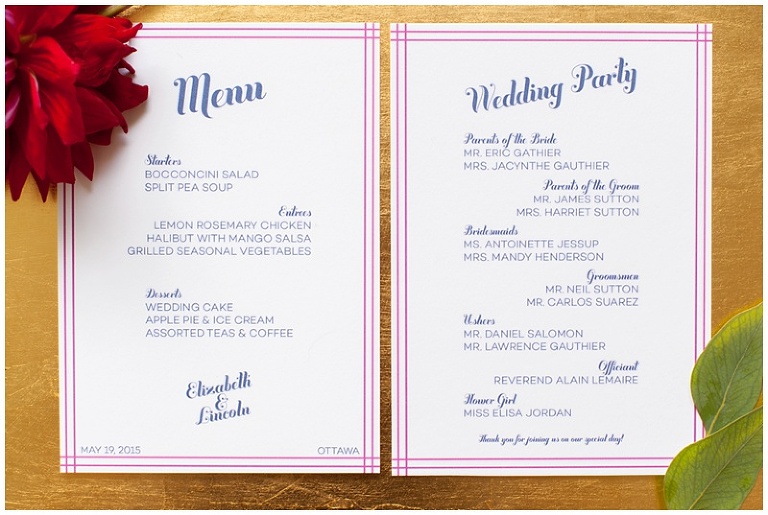 Menu
Starters
BOCCONCINI SALAD
SPLIT PEA SOUP
Entrees
LEMON ROSEMARY CHICKEN
HALIBUT WITH MANGO SALSA
GRILLED SEASONAL VEGETABLES
Desserts
WEDDING CAKE
APPLE PIE & ICE CREAM
ASSORTED TEAS & COFFEE
Elizabeth
&
Lincoln
MAY 19, 2015 OTTAWA
Wedding Party
Parents of the Bride
MR. ERIC GATHIER
MRS. JACYNTHE GAUTHIER
Parents of the Groom
MR. JAMES SUTTON
MRS. HARRIET SUTTON
Bridesmaids
MS. ANTOINETTE JESSUP
MRS. MANDY HENDERSON
Groomsmen
MR. NEIL SUTTON
MR. CARLOS SUAREZ
Ushers
MR. DANIEL SALOMON
MR. LAWRENCE GAUTHIER
Officiant
REVEREND ALAIN LEMAIRE
Flower Girl
MISS ELISA JORDAN
Thank you for joining us on our special day!